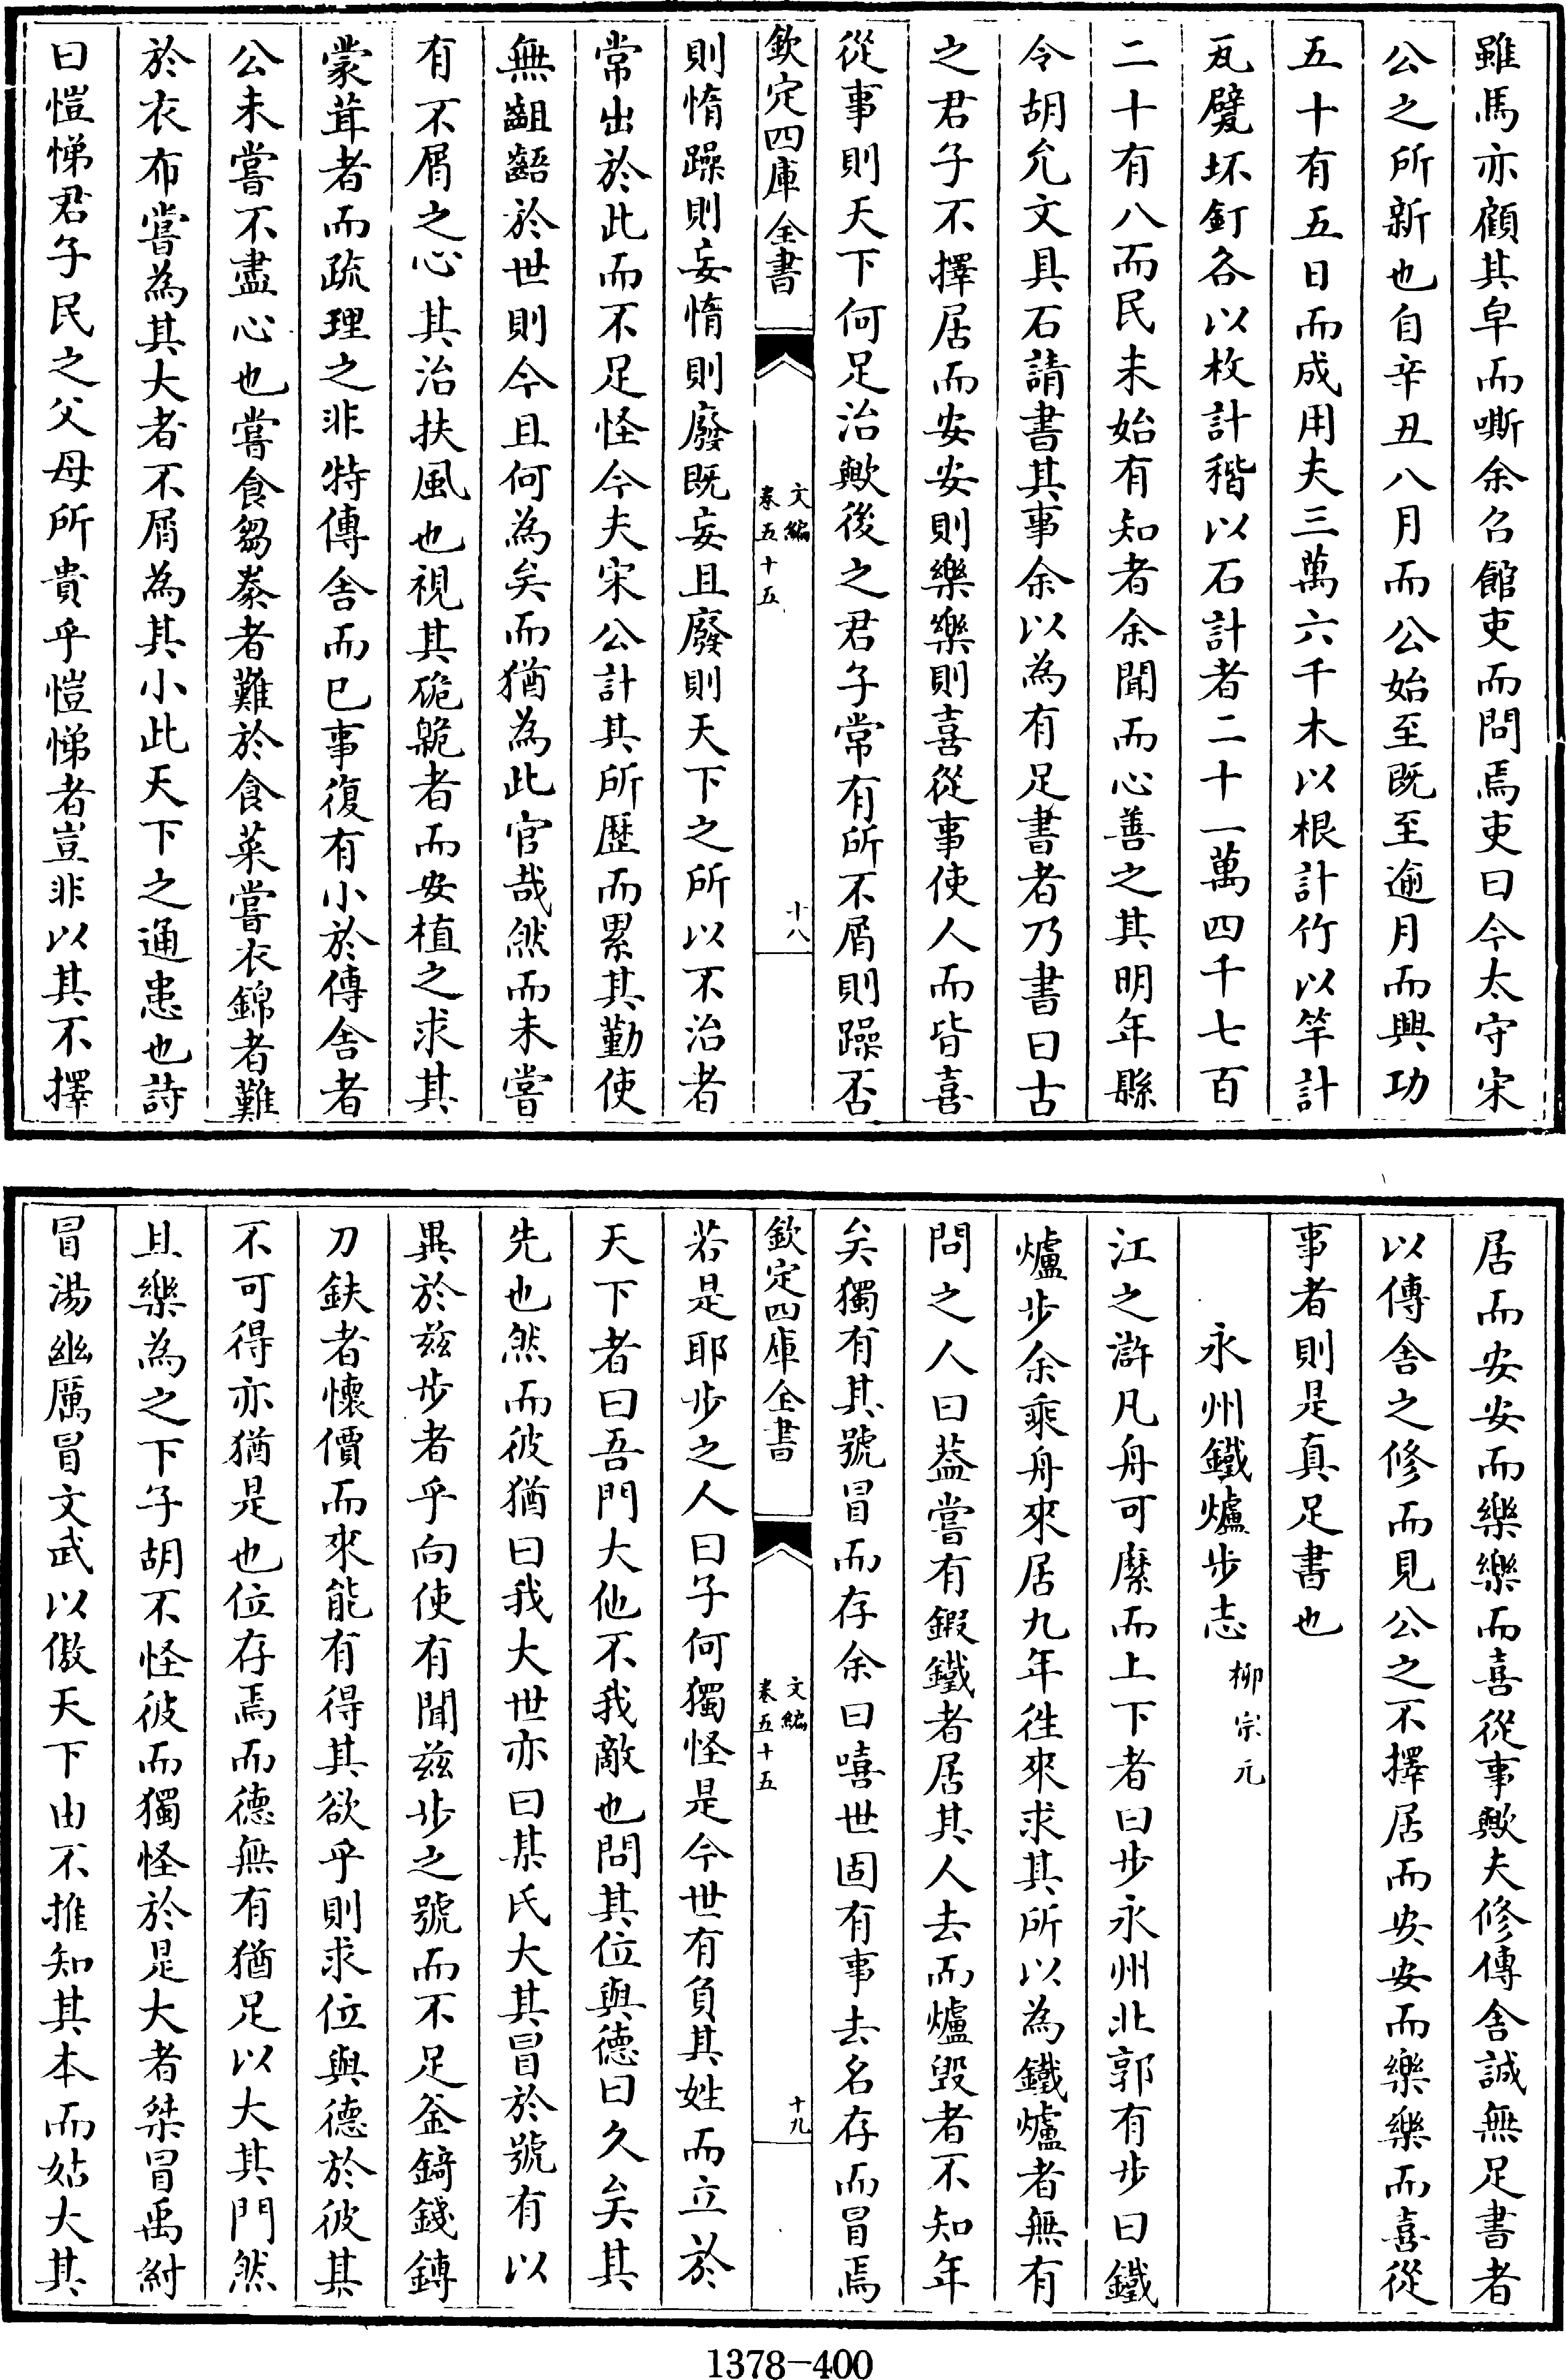 雖馬亦顧其皁而嘶余召館吏而問焉吏曰今太守宋
公之所新也自辛丑八月而公始至既至逾月而興功
五十有五日而成用夫三萬六千木以根計竹以竿計
瓦甓坏釘各以枚計稭以石計者二十一萬四千七百
二十有八而民未始有知者余聞而心善之其明年縣
令胡允文具石請書其事余以為有足書者乃書曰古
之君子不擇居而安安則樂樂則喜從事使人而皆喜
從事則天下何足治歟後之君子常有所不屑則躁否
欽定四庫全書
文編
卷五十五
十八
則惰躁則妄惰則廢既妄且廢則天下之所以不治者
常出於此而不足怪今夫宋公計其所歷而累其勤使
無齟齬於世則今且何為矣而猶為此官哉然而未嘗
有不屑之心其治扶風也視其硊臲者而安植之求其
蒙茸者而疏理之非特傳舍而已事復有小於傳舍者
公未嘗不盡心也嘗食芻豢者難於食菜嘗衣錦者難
於衣布嘗為其大者不屑為其小此天下之通患也詩
曰愷悌君子民之父母所貴乎愷悌者豈非以其不擇
居而安安而樂樂而喜從事歟夫修傳舍誠無足書者
以傳舍之修而見公之不擇居而安安而樂樂而喜從
事者則是真足書也
永州鐵爐步志 柳宗元
江之滸凡舟可縻而上下者曰步永州北郭有步曰鐵
爐步余乘舟來居九年徃來求其所以為鐵爐者無有
問之人曰葢嘗有鍜鐵者居其人去而爐毀者不知年
矣獨有其號冒而存余曰嘻世固有事去名存而冒焉
欽定四庫全書
文編
卷五十五
十九
若是耶步之人曰子何獨怪是今世有負其姓而立於
天下者曰吾門大他不我敵也問其位與德曰久矣其
先也然而彼猶曰我大世亦曰某氏大其冒於號有以
異於兹步者乎向使有聞兹步之號而不足釜錡錢鎛
刀鈇者懷價而來能有得其欲乎則求位與德於彼其
不可得亦猶是也位存焉而德無有猶足以大其門然
且樂為之下子胡不怪彼而獨怪於是大者桀冒禹紂
冒湯幽厲冒文武以傲天下由不推知其本而姑大其
1378-400